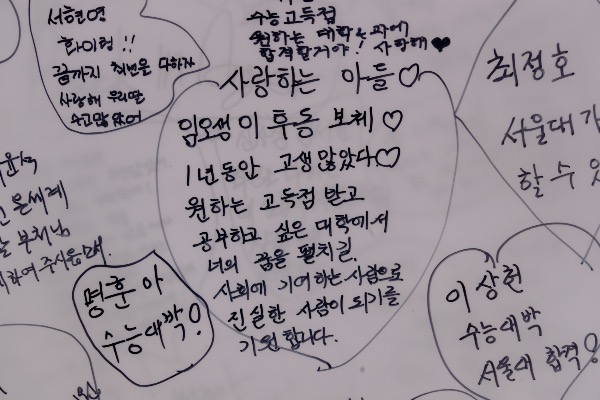 서현영
화이팅!!
끝까지 최선을 다하자
사랑해 우리딸
수고많았어
수능고득점
원하는 대학, 과에
합격할거야! 사랑해♥
사랑하는 아들♡
임오생 이후동 보체♡
1년동안 고생많았다♡
원하는 고득점 받고
공부하고 싶은 대학에서
너의 꿈을 펼치길.
사회에 기여하는 사람으로
진실한 사람이 되기를
기원합니다.
최정호
서울대 가
할 수 있
은씨계
부처님
명훈아
수능대박!
이상현
수능대박
서울대 합격!